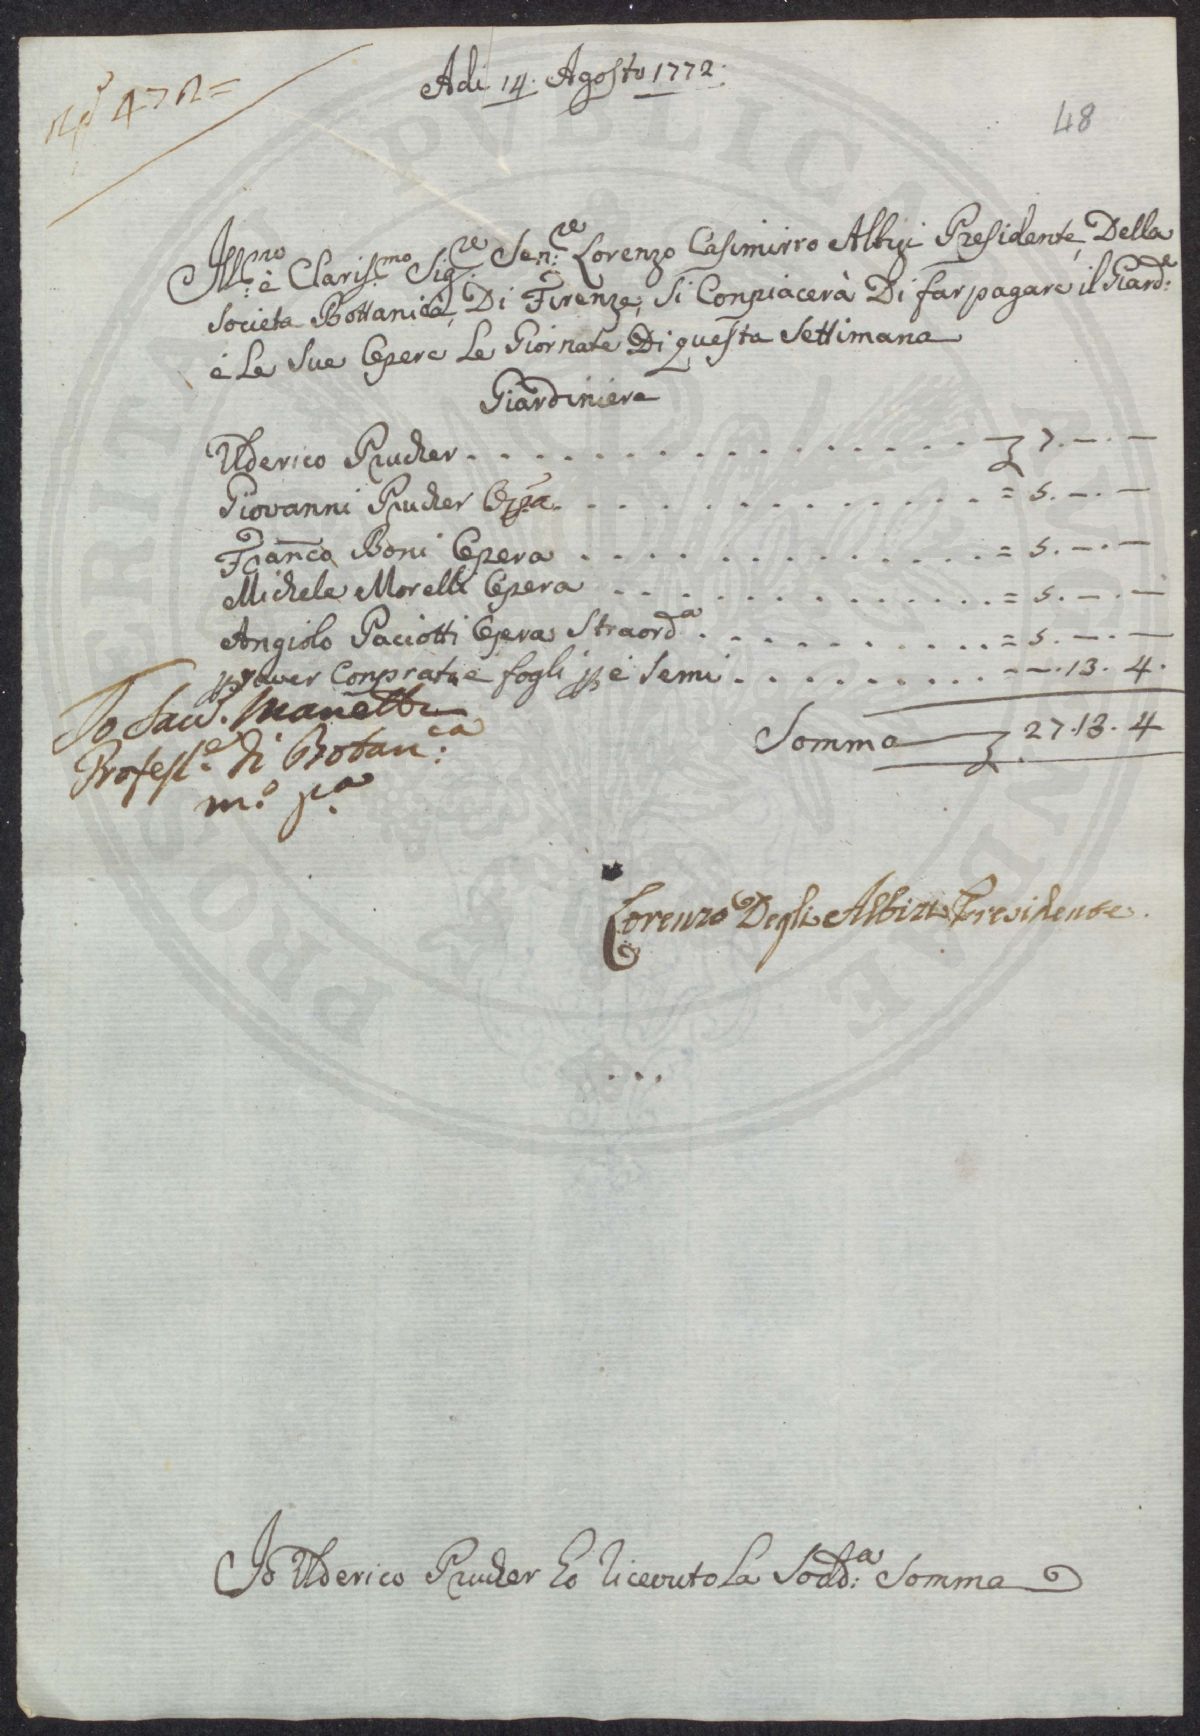 Adi 14. Agosto 1772.
48
Ill.mo è Claris.mo Sig.re Sen.re Lorenzo Casimirro Albizi Presidente Della
Societa Bottanica Di Firenze, Si Conpiacerà Di far pagare il Giard.e
é Le Sue Opere Le Giornate Di questa Settimana
Giardiniere
Uderico Prucker 7. — . —
Giovanni Prucker Op.ra = 5. — . —
Franco Boni Opera = 5. — . —
Michele Morelli Opera = 5. — . —
Angiolo Paciotti Opera Straord.a = 5. — . —
p aver Conprato é fogli p é Semi — . 13. 4.
Somma 27. 13. 4
Io Sav.o Manetti
Profess.e di Botan.ca
m.o p.a
Lorenzo Degli Albizi Presidente.
Io Uderico Prucker Ho Ricevuto La Sodd.a Somma